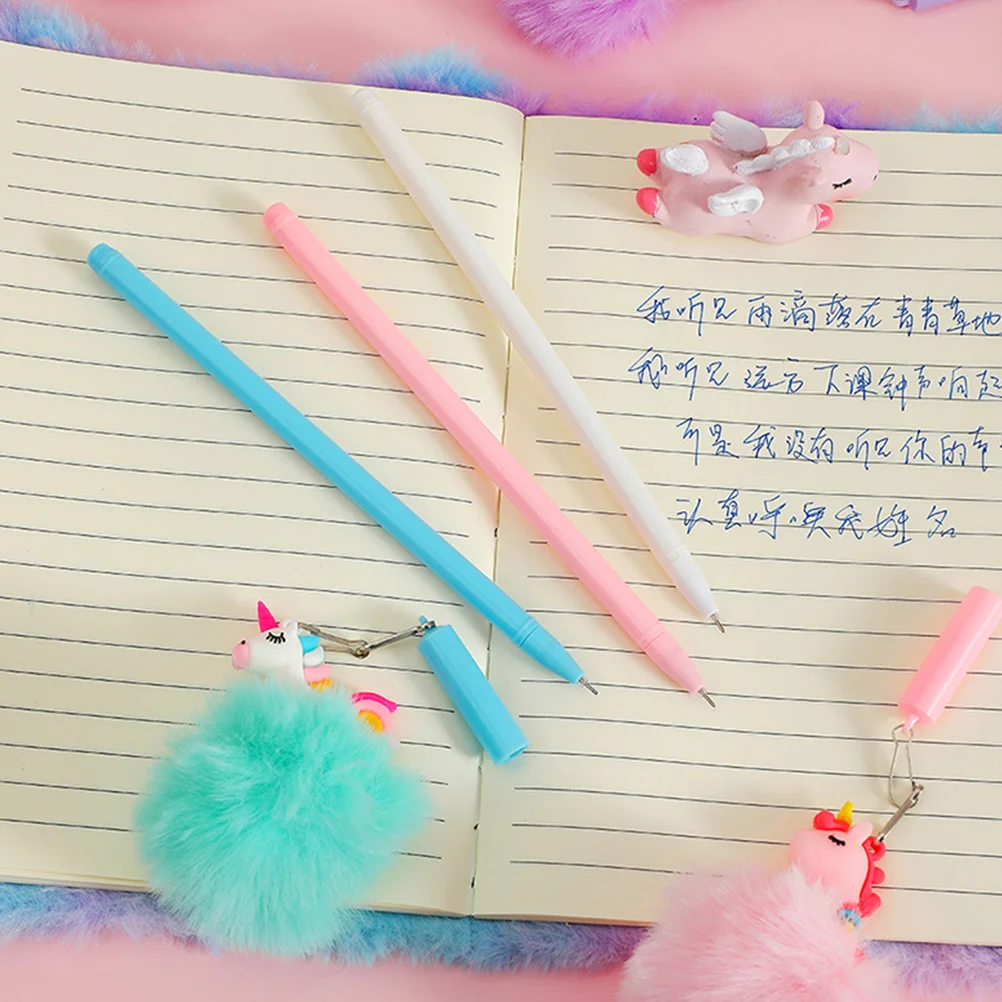 我听见雨滴落在青青草地
我听见远方下课钟声响起
可是我没有听见你的声
认真呼唤我姓名